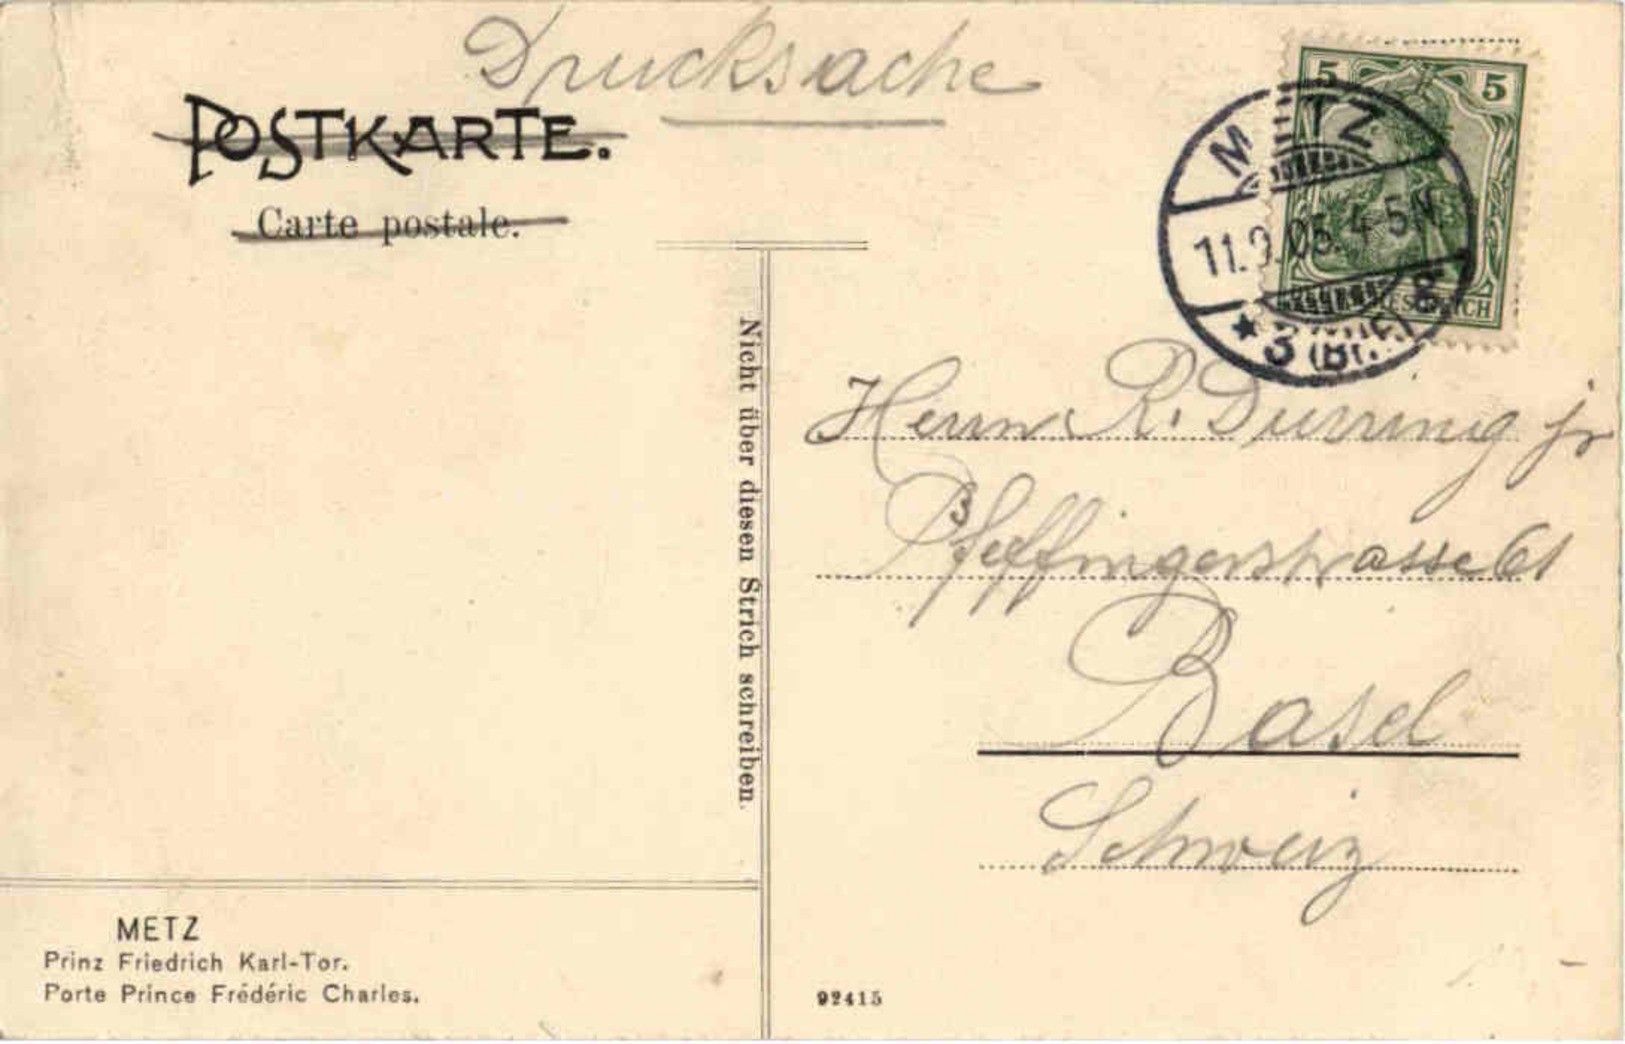 Drucksache
POSTKARTE.
Carte postale.
5 5
METZ
11.9.05. 4-5N
* 3 (Bf.
Nicht über diesen Strich schreiben.
Herrn R. Durring jr
Pfeffingerstrasse 61
Basel
Schweiz
METZ
Prinz Friedrich Karl-Tor.
Porte Prince Frédéric Charles.
92415